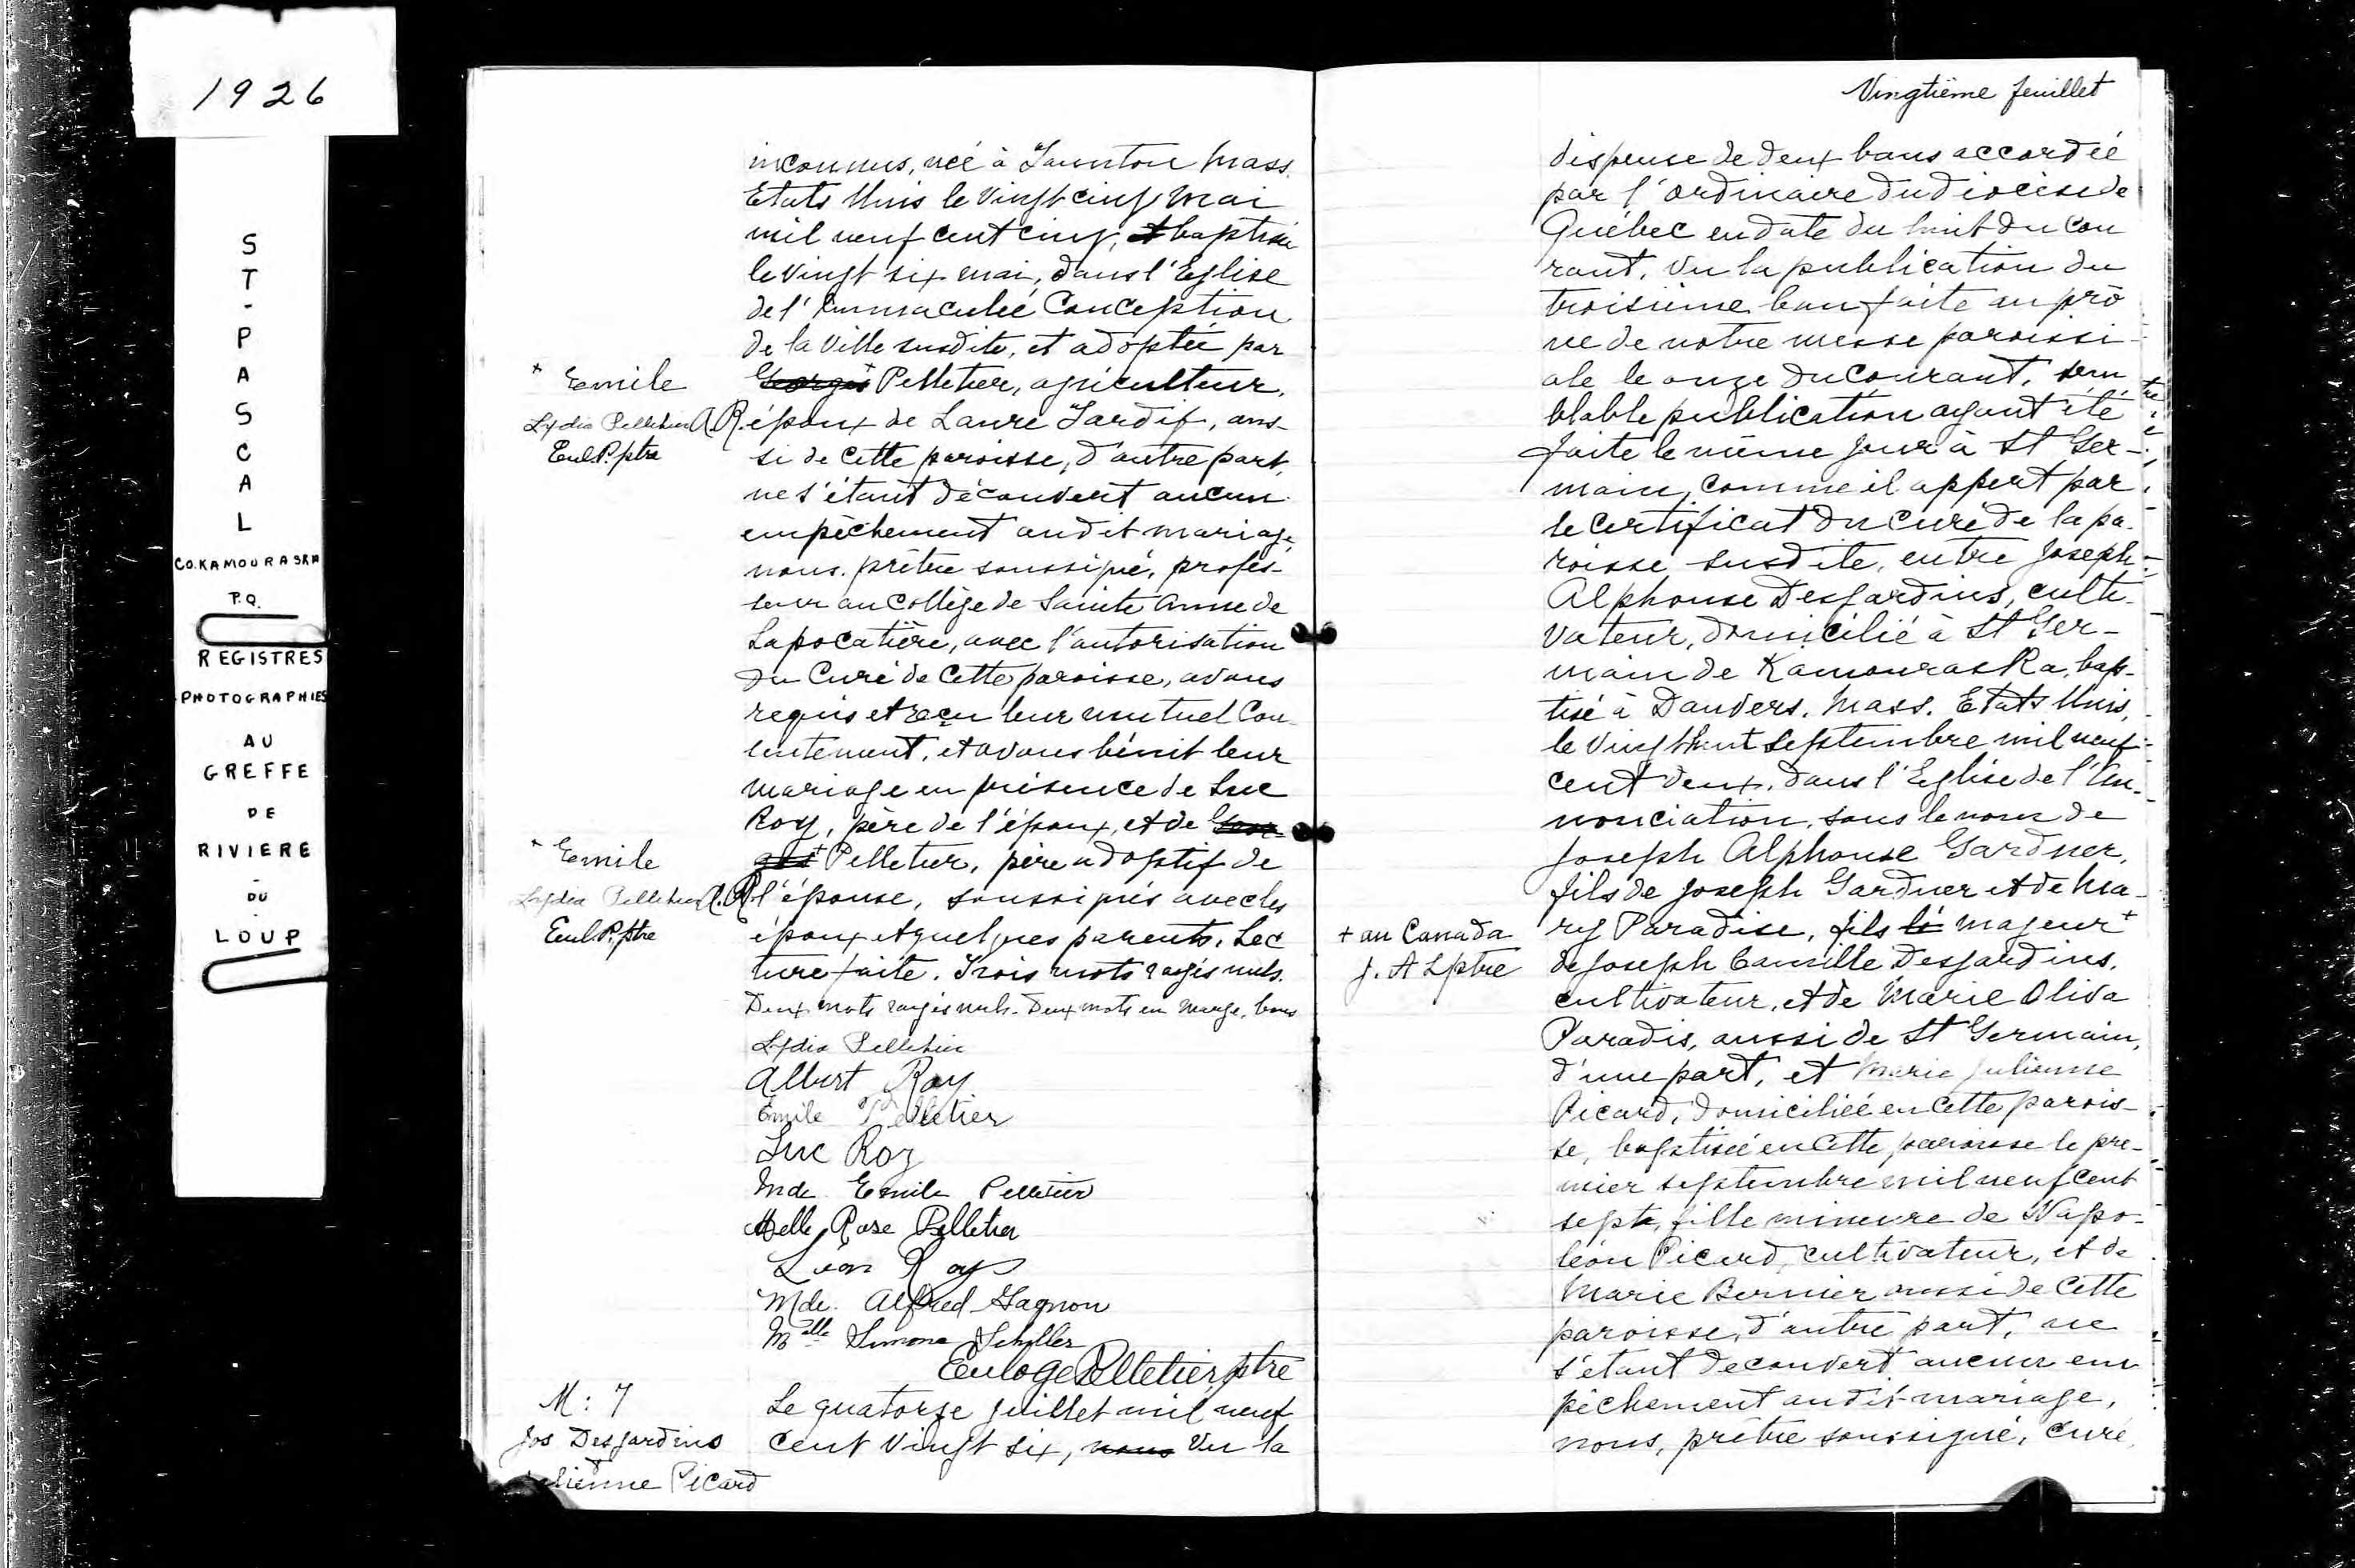 1926
S
T
-
P
A
S
C
A
L
CO. KAMOURASKA
P.Q.
REGISTRES
PHOTOGRAPHIES
AU
GREFFE
DE
RIVIERE
-
DU
LOUP
inconnus, née à Taunton Mass.
Etats Unis le vingt cinq mai
mil neuf cent cinq, et baptisée
le vingt six mai, dans l'Eglise
de l'Immaculée Conception
de la Ville susdite, et adoptée par
+ Emile
Georges + Pelletier, agriculteur,
Lydia Pelletier A.R.
époux de Laure Tardif, aus-
Eul. P. ptre
si de cette paroisse, d'autre part,
ne s'étant découvert aucun
empêchement audit mariage,
nous, prêtre soussigné, profes-
seur au Collège de Sainte Anne de
Lapocatière, avec l'autorisation
du Curé de cette paroisse, avons
requis et reçu leur mutuel Con-
sentement, et avons bénit leur
mariage en présence de Luc
Roy, père de l'époux, et de Geor-
+ Emile
ges + Pelletier, père adoptif de
Lydia Pelletier A.R.
l'épouse, soussignés avec les
Eul. P. ptre
époux et quelques parents. Lec
ture faite. Trois mots rayés nuls.
Deux mots rayés nuls. Deux mots en marge, bons
Lydia Pelletier
Albert Roy
Emile Pelletier
Luc Roy
Mde Emile Pelletier
Melle Rose Pelletier
Léon Roy
Mde. Alfred Gagnon
Melle Simone
Euloge Pelletier, ptre
M: 7
Jos Desjardins
Julienne Picard
Le quatorze juillet mil neuf
cent vingt six, nous Vu la
Vingtième feuillet
dispense de deux bans accordée
par l'ordinaire du diocèse de
Québec en date du huit du cou
rant, Vu la publication du
troisième ban faite au prô
ne de notre messe paroissi-
ale le onze du courant, sem
blable publication ayant été
faite le même jour à St Ger-
main, comme il appert par
le certificat du curé de la pa-
roisse susdite, entre Joseph
Alphonse Desjardins, culti-
vateur, domicilié à St Ger-
main de Kamouraska, bap-
tisé à Danvers, Mass. Etats Unis,
le vingt huit septembre mil neuf
cent deux, dans l'Eglise de l'An-
nonciation, sous le nom de
Joseph Alphonse Gardner,
fils de Joseph Gardner et de Ma-
+ au Canada
ry Paradise, fils majeur +
J. A L ptre
de Joseph Camille Desjardins,
cultivateur, et de Marie Oliva
Paradis, aussi de St Germain,
d'une part, et Marie Julienne
Picard, domiciliée en cette parois-
se, baptisée en cette paroisse le pre-
mier septembre mil neuf cent
sept, fille mineure de Napo-
léon Picard, cultivateur, et de
Marie Bernier aussi de cette
paroisse, d'autre part, ne
s'étant decouvert aucun em
pêchement audit mariage,
nous, prêtre soussigné, curé,